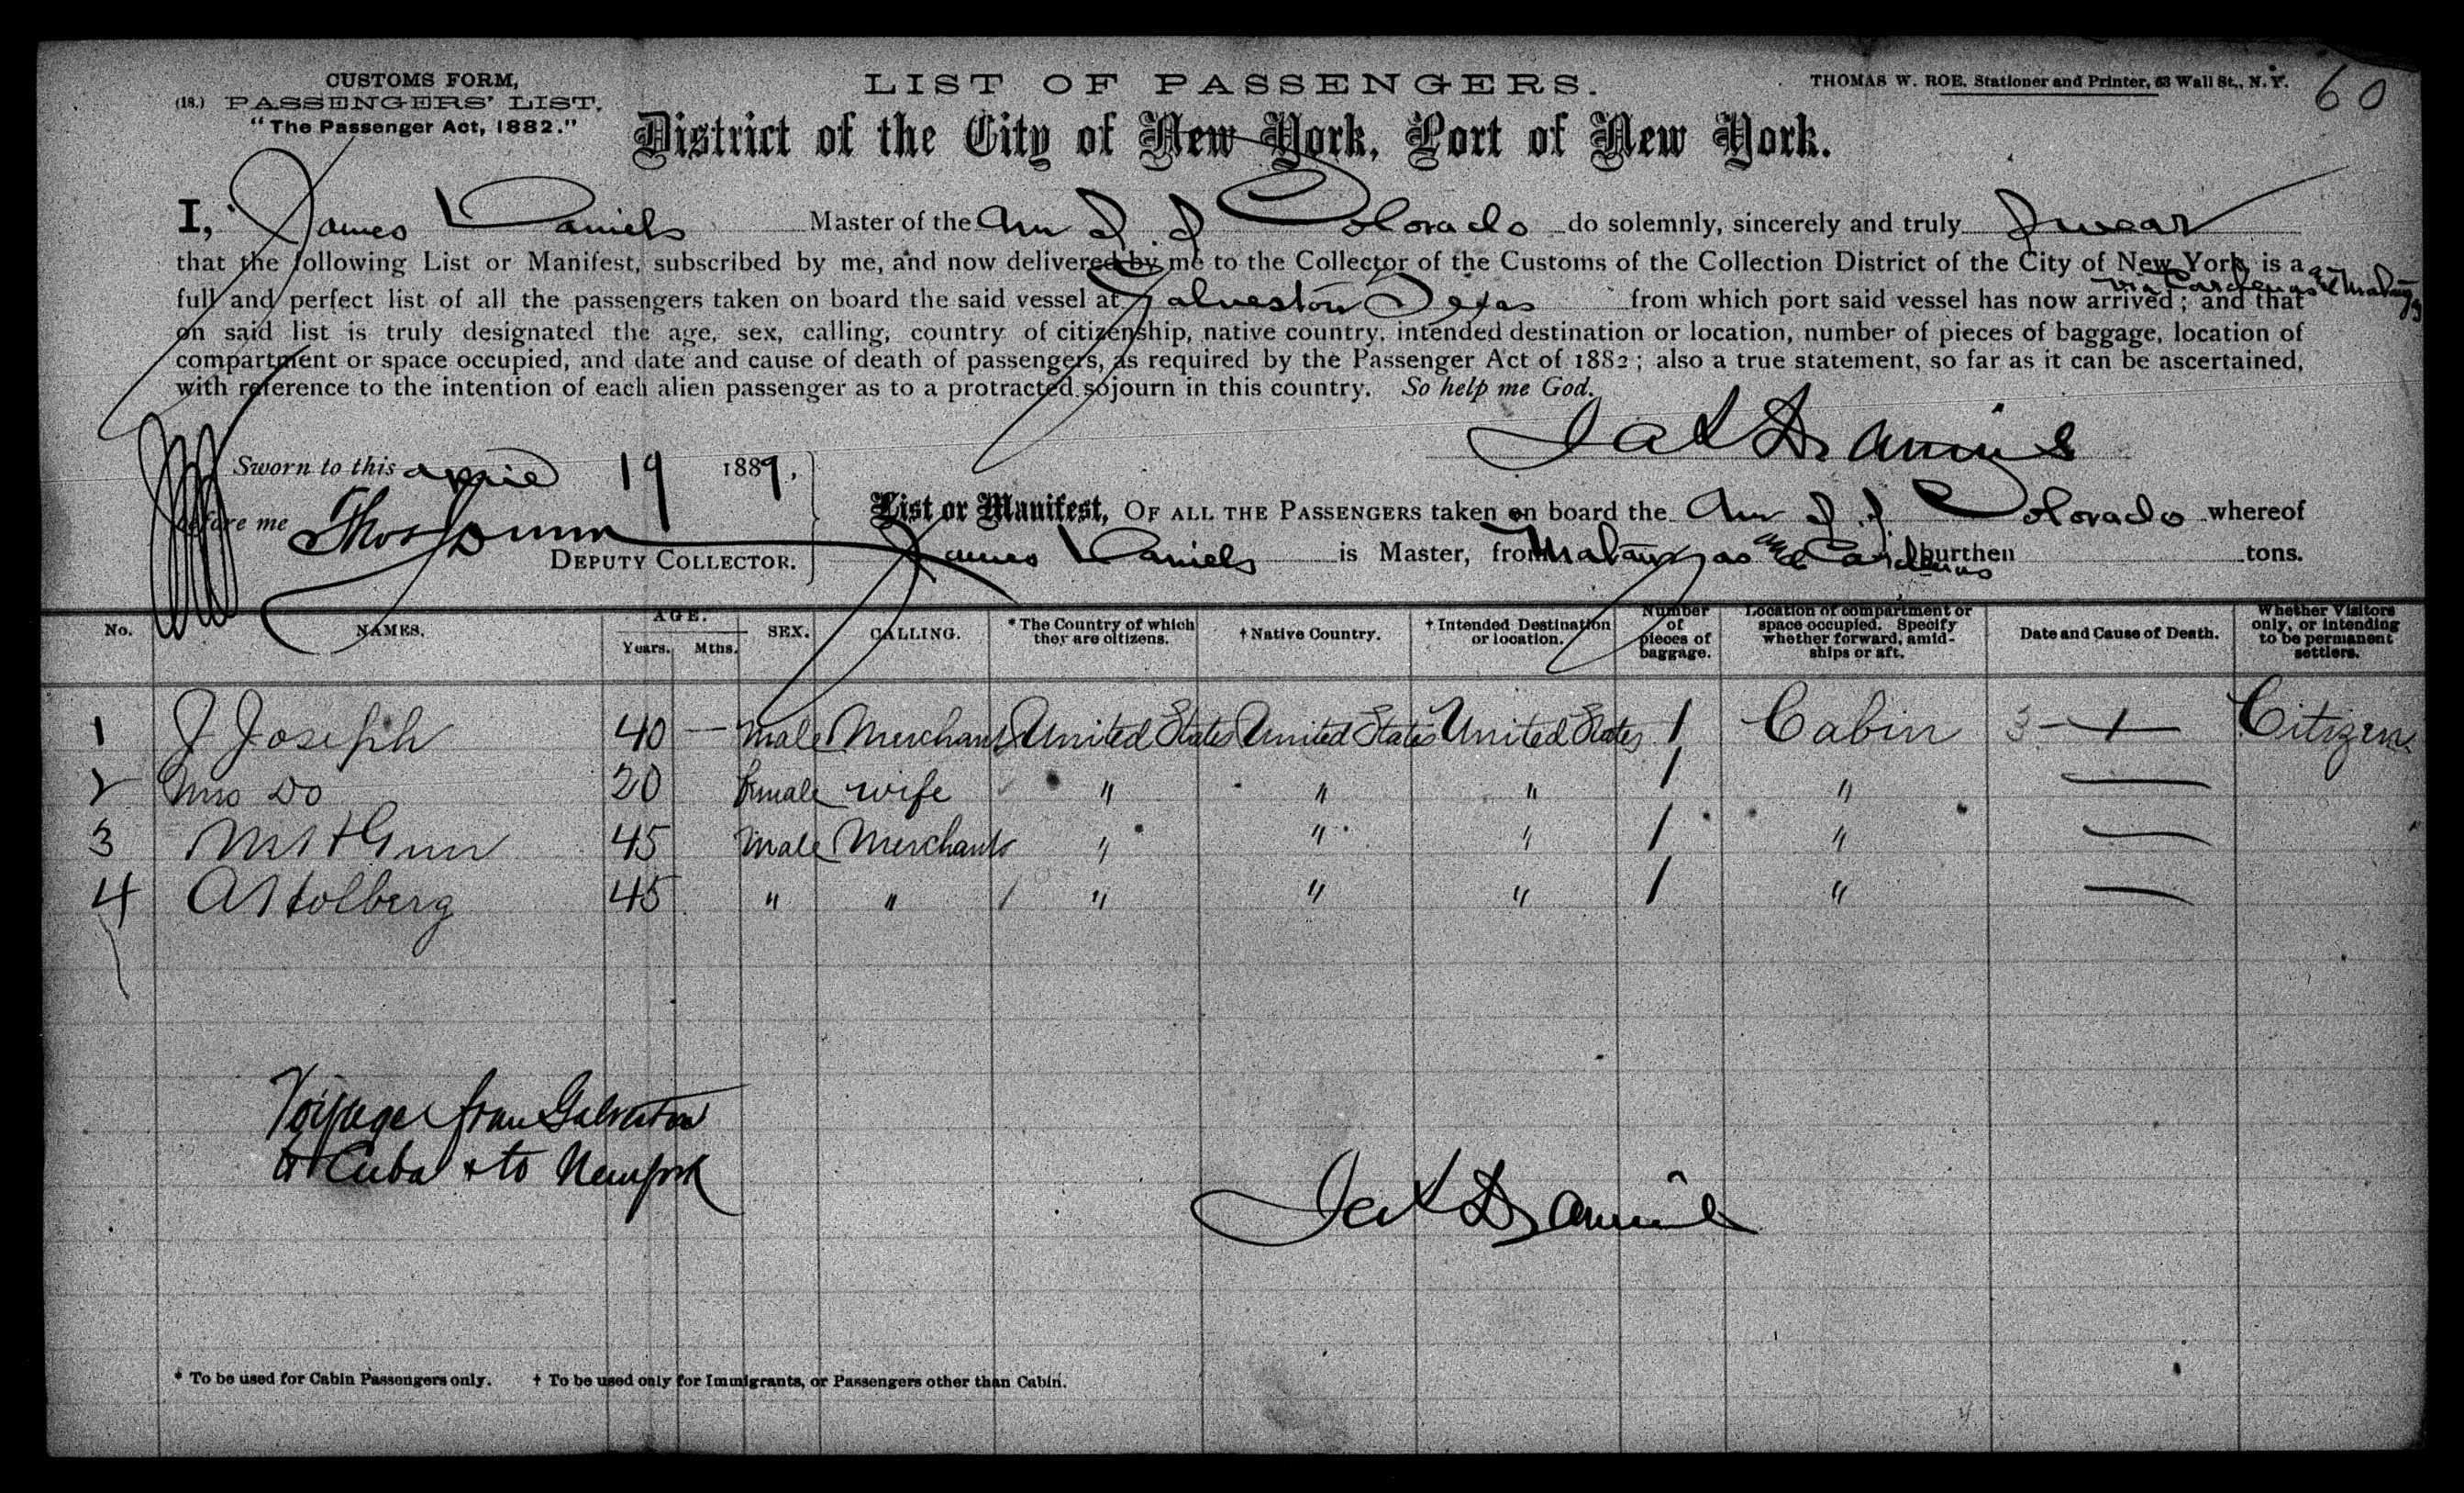 CUSTOMS FORM,
(18.) PASSENGERS' LIST,
"The Passenger Act, 1882."
LIST OF PASSENGERS.
THOMAS W. ROE, Stationer and Printer, 63 Wall St., N. Y.
60
District of the City of New York, Port of New York.
I, James Daniels Master of the Am S.S Colorado do solemnly, sincerely and truly Swear
that the following List or Manifest, subscribed by me, and now delivered by me to the Collector of the Customs of the Collection District of the City of New York, is a
via Cardenas & Matanzas
full and perfect list of all the passengers taken on board the said vessel at Galveston Texas from which port said vessel has now arrived; and that
on said list is truly designated the age, sex, calling, country of citizenship, native country, intended destination or location, number of pieces of baggage, location of
compartment or space occupied, and date and cause of death of passengers, as required by the Passenger Act of 1882; also a true statement, so far as it can be ascertained,
with reference to the intention of each alien passenger as to a protracted sojourn in this country. So help me God.
Jas Daniels
Sworn to this April 19 1889,
before me Thos Dunn
DEPUTY COLLECTOR.
List or Manifest, OF ALL THE PASSENGERS taken on board the Am S.S Colorado whereof
James Daniels is Master, from Matanzas and Cardenas burthen tons.
No. NAMES. AGE. Years. Mths. SEX. CALLING. * The Country of which they are citizens. † Native Country. † Intended Destination or location. Number of pieces of baggage. Location of compartment or space occupied. Specify whether forward, amidships or aft. Date and Cause of Death. Whether Visitors only, or intending to be permanent settlers.
1 J Joseph 40 — Male Merchant United States United States United States 1 Cabin 3 — Citizens
2 Mrs Do 20 female wife " " " 1 " —
3 45 Male Merchant " " " 1 " —
4 A Stolberg 45 " " " " " 1 " —
Voyage from Galveston
to Cuba & to New York
Jas Daniels
* To be used for Cabin Passengers only. † To be used only for Immigrants, or Passengers other than Cabin.